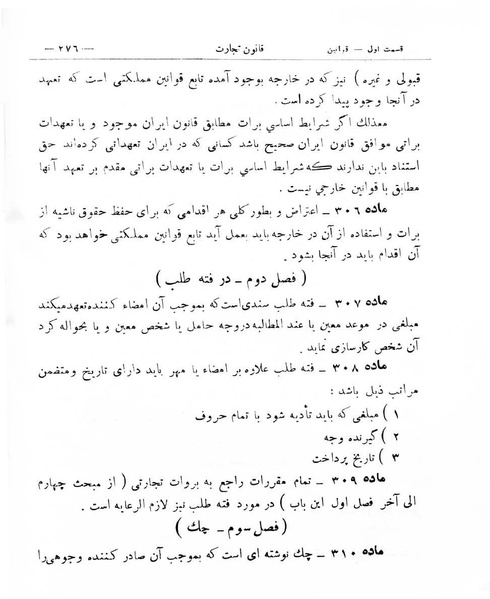 قسمت اول — قوانین قانون تجارت — ٢٧٦ —
قبولی و غیره ) نیز که در خارجه بوجود آمده تابع قوانین مملکتی است که تعهد
در آنجا وجود پیدا کرده است .
معذالك اگر شرایط اساسی برات مطابق قانون ایران موجود و یا تعهدات
براتی موافق قانون ایران صحیح باشد کسانی که در ایران تعهداتی کرده‌اند حق
استناد باین ندارند که شرایط اساسی برات یا تعهدات براتی مقدم بر تعهد آنها
مطابق با قوانین خارجی نیست .
ماده ٣٠٦ ـ اعتراض و بطور کلی هر اقدامی که برای حفظ حقوق ناشیه از
برات و استفاده از آن در خارجه باید بعمل آید تابع قوانین مملکتی خواهد بود که
آن اقدام باید در آنجا بشود .
( فصل دوم ـ در فته طلب )
ماده ٣٠٧ ـ فته طلب سندی است که بموجب آن امضاء کننده تعهد میکند
مبلغی در موعد معین یا عند المطالبه در وجه حامل یا شخص معین و یا بحواله کرد
آن شخص کارسازی نماید .
ماده ٣٠٨ ـ فته طلب علاوه بر امضاء یا مهر باید دارای تاریخ و متضمن
مراتب ذیل باشد :
١ ) مبلغی که باید تأدیه شود با تمام حروف
٢ ) گیرنده وجه
٣ ) تاریخ پرداخت
ماده ٣٠٩ ـ تمام مقررات راجع به بروات تجارتی ( از مبحث چهارم
الی آخر فصل اول این باب ) در مورد فته طلب نیز لازم الرعایه است .
( فصل سوم ـ چك )
ماده ٣١٠ ـ چك نوشته ای است که بموجب آن صادر کننده وجوهی را